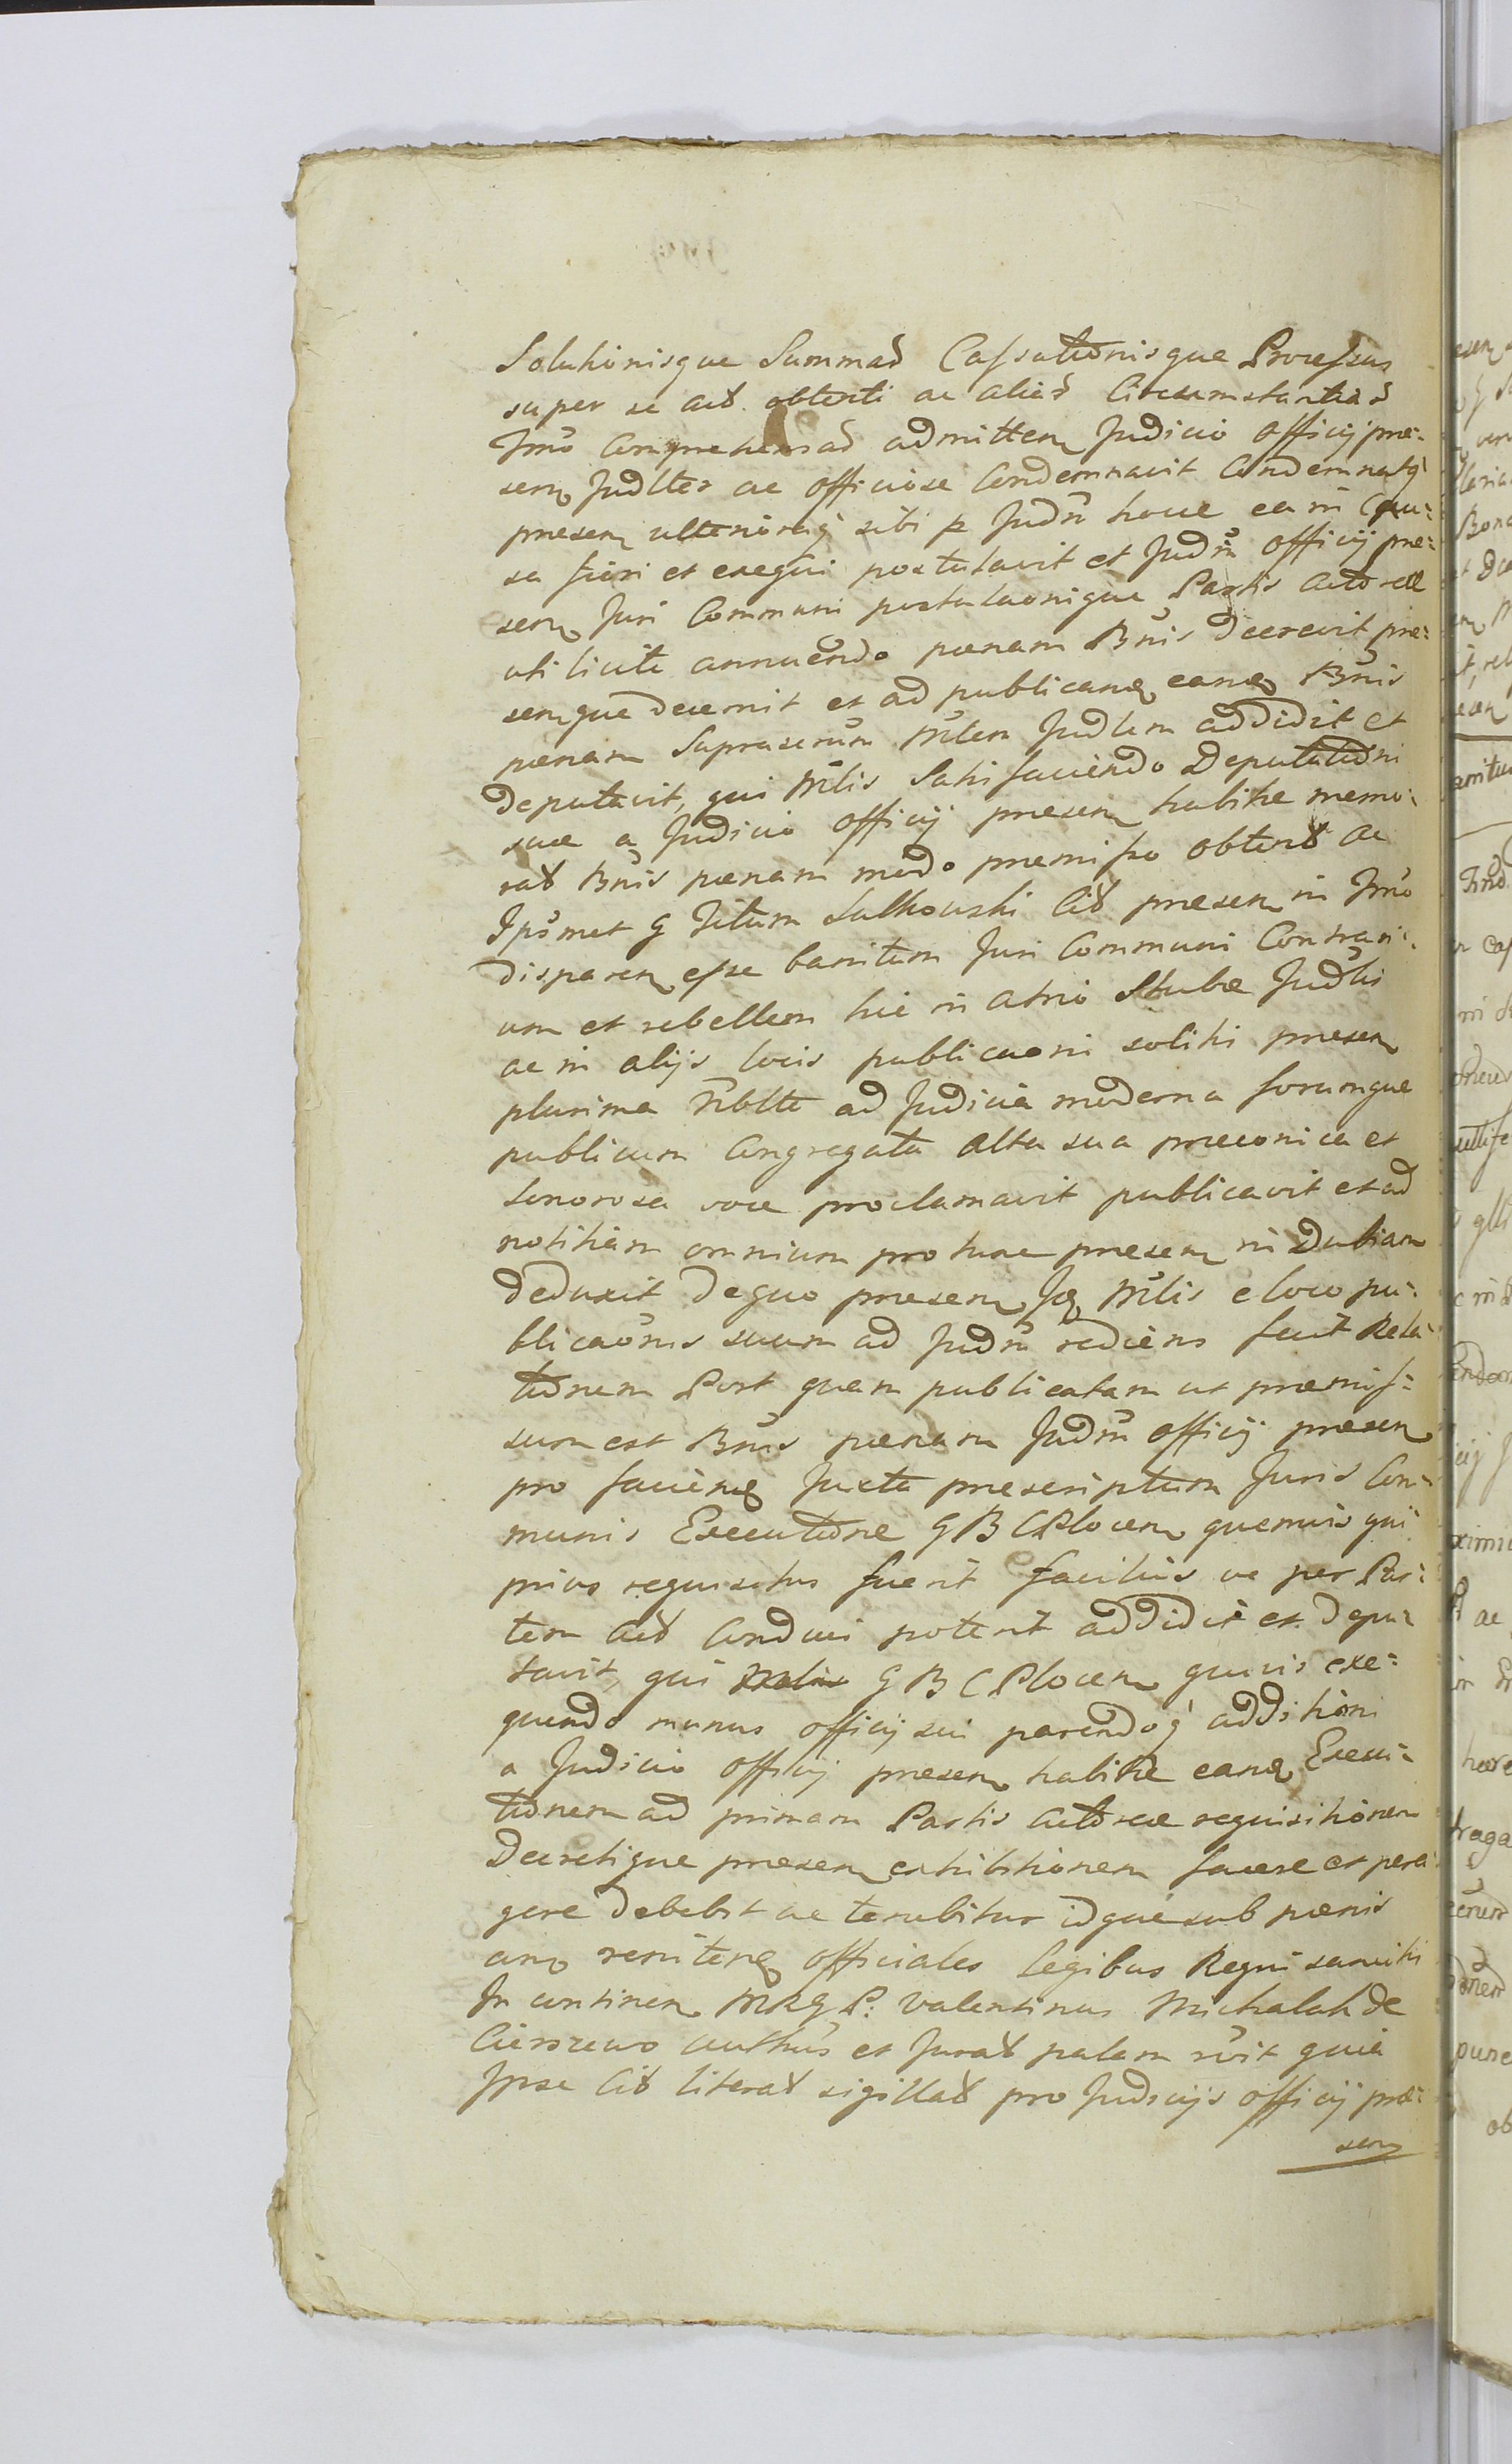 Solutionisque Summad Cassationisque Processus
super se act. obtenti ac aliad Circumstantiad
Imo Comprehensad admitten Judicio officij præ:
sen Judlter ac officiose Condemnavit Condemnatq
præsen ulteriorēq sibi p Judm hocce ea in Cau:
sa fieri et exequi postulavit et Judm officij præ:
sen Juri Communi postulaonique Partis Actoreæ
uti licite annuendo pænam Bnis decrevit præ:
senque decernit et ad publicand eand Bnis
pænam Suprascrim Mlem Judlem addidit et
deputavit, qui Mlis Satisfaciendo Deputationi
suæ a Judicio officij præsen habitæ memo:
rat Bnis pænam modo præmisso obtent ac
Ipsmet G Titum Sulkowski Cit præsen in Imo
disparen esse banitum Juri Communi Contrari:
um et rebellem hic in atrio Stubæ Judlis
ac in alijs locis publicaoni soliti præsen
plurima Nblte ad Judicia moderna forumque
publicum Congregata alta sua præconica et
Sonorosa voce proclamavit publicavit et ad
notitiam omnium pro tunc præsen in dubiam
deduxit de quo præsen Id Mlis e loco pu:
blicaonis suum ad Judm rediens fecit Rela:
tionem Post quam publicatam ut præmis:
sum est Bnis pænam Judm officij præsen
pro faciend Juxta præscriptum Juris Com:
munis Executione G B C Plocen quemvis qui
prius requisitus fuerit facilius ve per Par:
tem Act Conduci poterit addidit et depu:
tavit, qui G B C Plocen quivis exe:
quendo munus officij sui parendoq additioni
a Judicio officij præsen habitæ eand Execu:
tionem ad primam Partis Actoreæ requisitionem
Decretique præsen exhibitionem facere et pera
gere debebit ac tenebitur idque sub pænis
renitend officiales Legibus Regni sanciti
In continen MRG P: Valentinus Michalak de
Cierszewo authus et Jurat palam rvit quia
Ipse Cit literat sigillat pro Judicijs officij præ:
sen